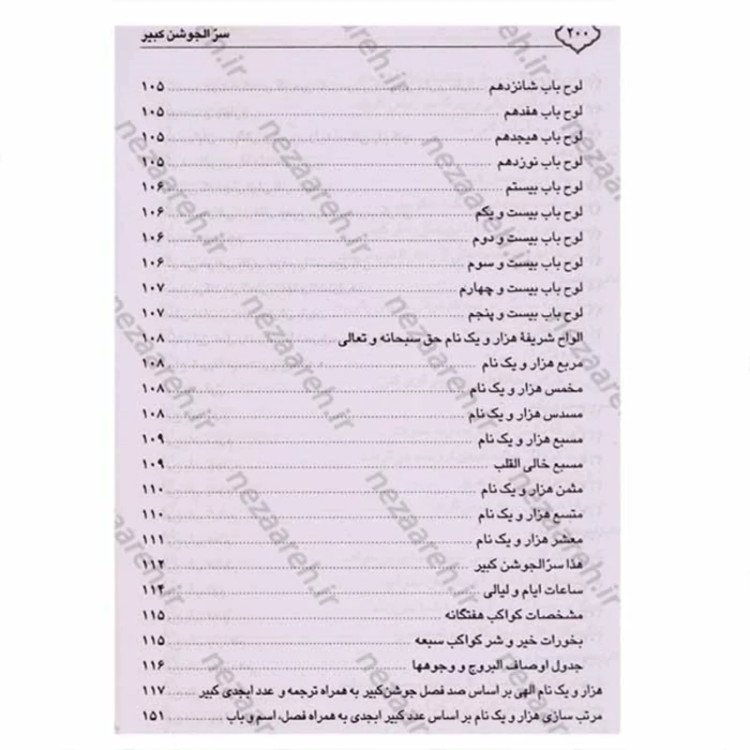 ۲۰۰ سرّ الجوشن کبیر
لوح باب شانزدهم ۱۰۵
لوح باب هفدهم ۱۰۵
لوح باب هیجدهم ۱۰۵
لوح باب نوزدهم ۱۰۵
لوح باب بیستم ۱۰۶
لوح باب بیست و یکم ۱۰۶
لوح باب بیست و دوم ۱۰۶
لوح باب بیست و سوم ۱۰۶
لوح باب بیست و چهارم ۱۰۷
لوح باب بیست و پنجم ۱۰۷
الواح شریفهٔ هزار و یک نام حق سبحانه و تعالی ۱۰۸
مربع هزار و یک نام ۱۰۸
مخمس هزار و یک نام ۱۰۸
مسدس هزار و یک نام ۱۰۸
مسبع هزار و یک نام ۱۰۹
مسبع خالی القلب ۱۰۹
مثمن هزار و یک نام ۱۱۰
متسع هزار و یک نام ۱۱۰
معشر هزار و یک نام ۱۱۱
هذا سرّالجوشن کبیر ۱۱۲
ساعات ایام و لیالی ۱۱۴
مشخصات کواکب هفتگانه ۱۱۵
بخورات خیر و شر کواکب سبعه ۱۱۵
جدول اوصاف البروج و وجوهها ۱۱۶
هزار و یک نام الهی بر اساس صد فصل جوشن‌کبیر به همراه ترجمه و عدد ابجدی کبیر ۱۱۷
مرتب سازی هزار و یک نام بر اساس عدد کبیر ابجدی به همراه فصل، اسم و باب ۱۵۱
nezaareh.ir